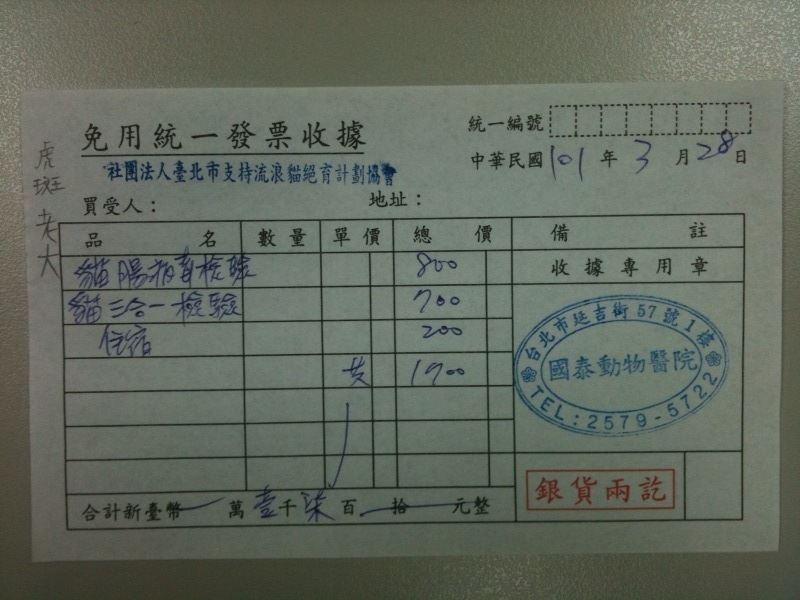 免用統一發票收據
統一編號
社團法人臺北市支持流浪貓絕育計劃協會
中華民國101年3月28日
虎斑老大
買受人：
地址：
品名 數量 單價 總價 備註
貓腸病毒檢驗 800
收據專用章
貓三合一檢驗 700
住宿 200
共 1700
台北市延吉街57號1樓
國泰動物醫院
TEL:2579-5722
銀貨兩訖
合計新臺幣 萬壹千柒百 拾 元整